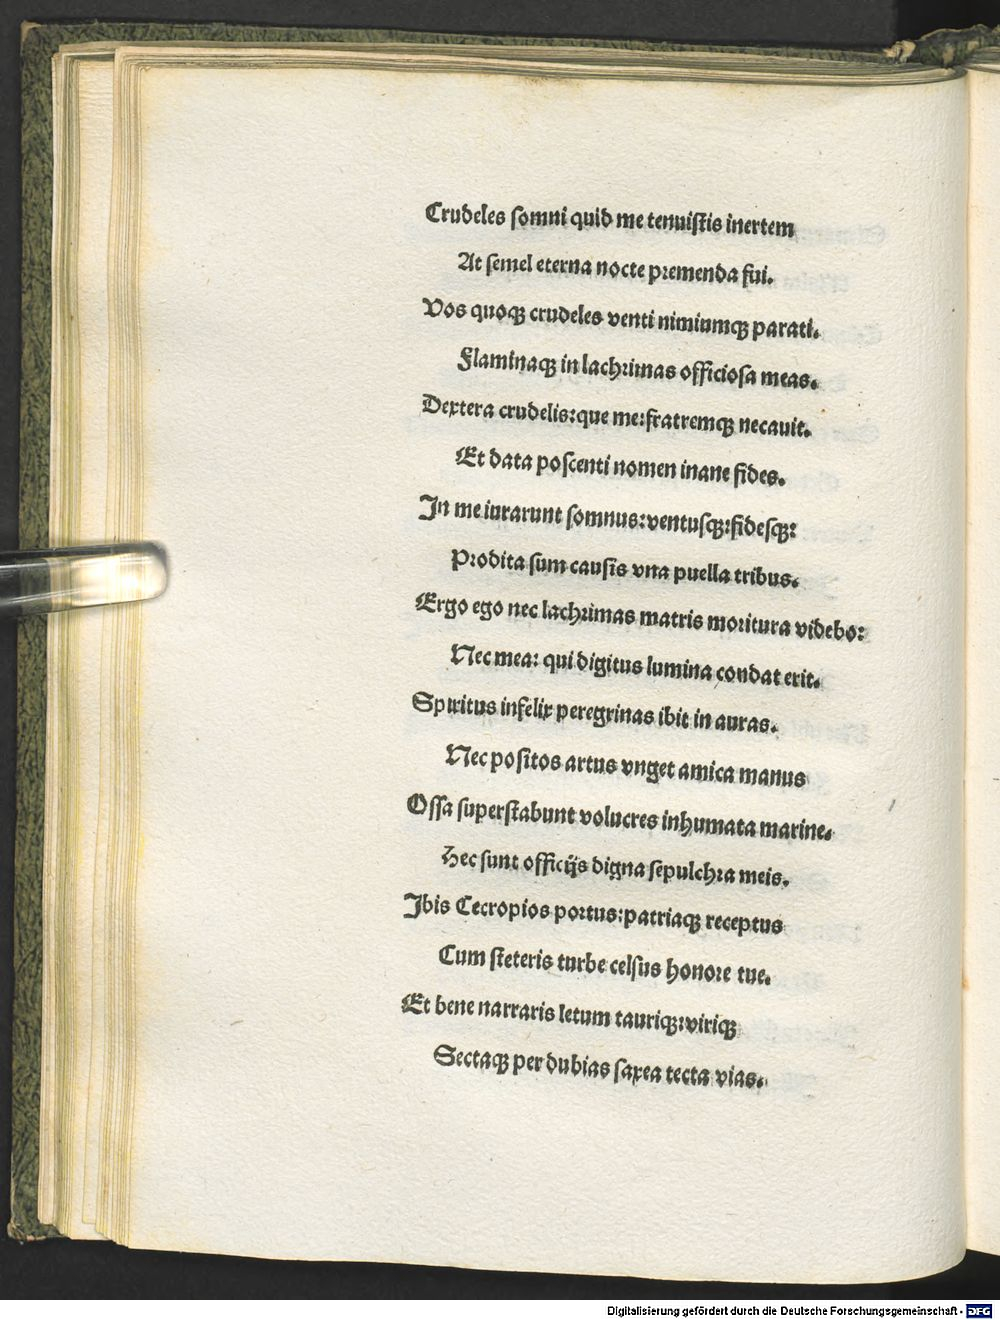 Crudeles ſomni quid me tenuiſtis inertem
At ſemel eterna nocte premenda fui.
Vos quoqꝫ crudeles venti nimiumqꝫ parati.
Flaminaqꝫ in lachrimas officioſa meas.
Dextera crudelis:que me:fratremqꝫ necauit.
Et data poſcenti nomen inane fides.
In me iurarunt ſomnus:ventuſqꝫ:fideſqꝫ:
Prodita ſum cauſis vna puella tribus.
Ergo ego nec lachrimas matris moritura videbo:
Nec mea: qui digitus lumina condat erit.
Spiritus infelix peregrinas ibit in auras.
Nec poſitos artus vnget amica manus
Oſſa ſuperſtabunt volucres inhumata marine.
Hec ſunt officijs digna ſepulchra meis.
Ibis Cecropios portus:patriaqꝫ receptus
Cum ſteteris turbe celſus honore tue.
Et bene narraris letum tauriqꝫ:viriqꝫ
Sectaqꝫ per dubias ſaxea tecta vias.
Digitalisierung gefördert durch die Deutsche Forschungsgemeinschaft - DFG